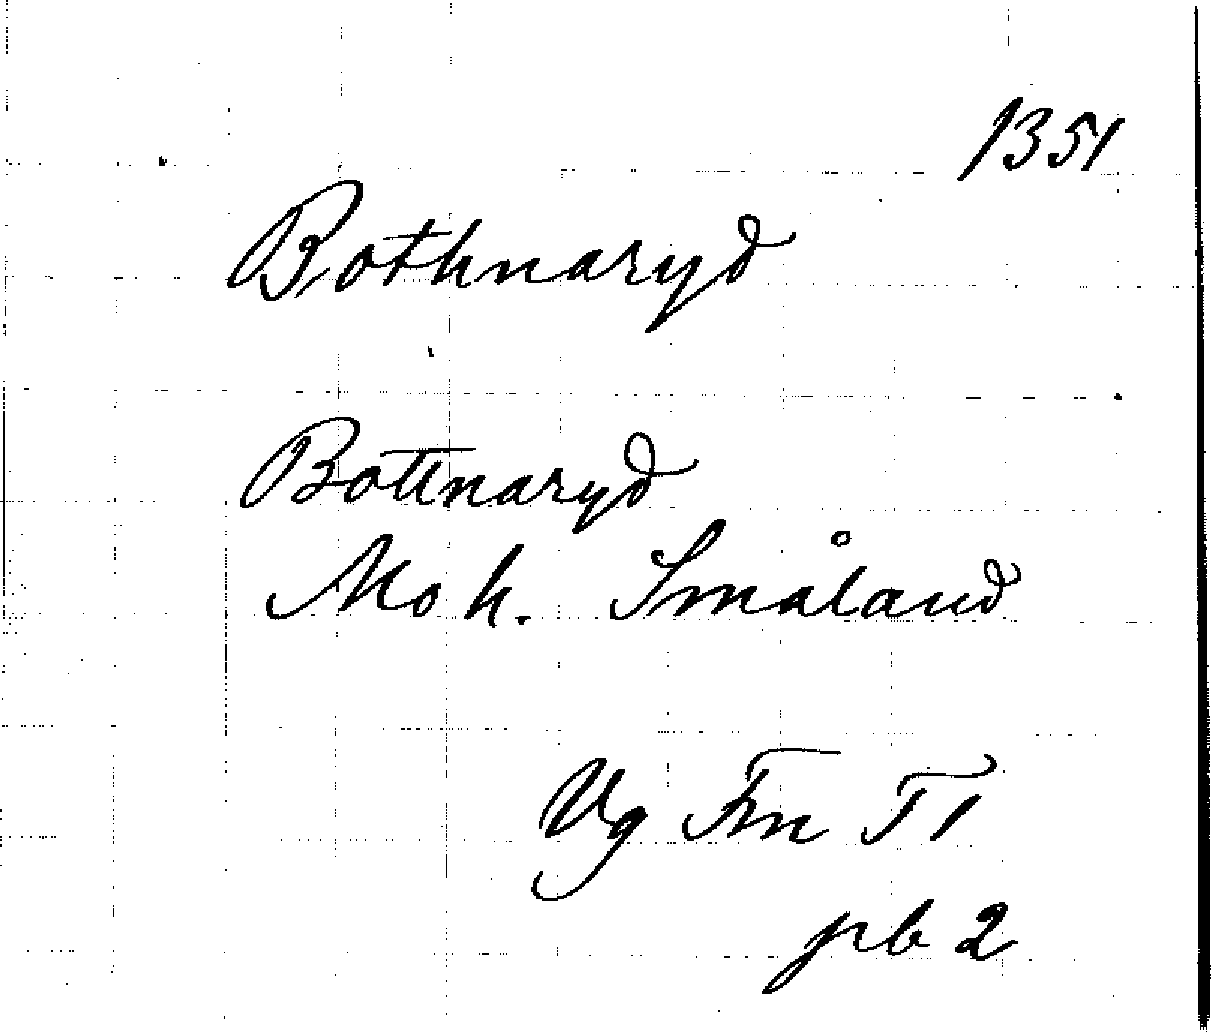 1351
Bothnaryd
Bottnaryd
Mo h. Småland
Vg Fnn T1
pb 2